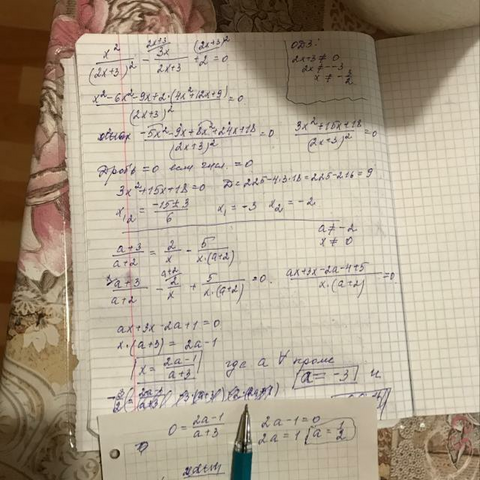 x²/(2x+3)² - 3x/(2x+3) + 2 = 0
2x+3 (2x+3)²
ОДЗ:
2x+3≠0
2x≠-3
x≠-3/2
x²-6x²-9x+2·(4x²+12x+9)/(2x+3)² = 0
-5x²-9x+8x²+24x+18/(2x+3)² = 0 3x²+15x+18/(2x+3)² = 0
Дробь = 0 если числ. = 0
3x²+15x+18=0 D=225-4·3·18=225-216=9
x₁,₂ = -15±3/6 x₁=-3 x₂=-2
a≠-2
x≠0
a+3/a+2 = 2/x - 5/x·(a+2)
a+3/a+2 - 2/x + 5/x·(a+2) = 0. ax+3x-2a-4+5/x·(a+2) = 0
ax+3x-2a+1=0
x·(a+3) = 2a-1
x = 2a-1/a+3 где a ∀ кроме a=-3 и
0 = 2a-1/a+3 2a-1=0
2a=1 a=1/2